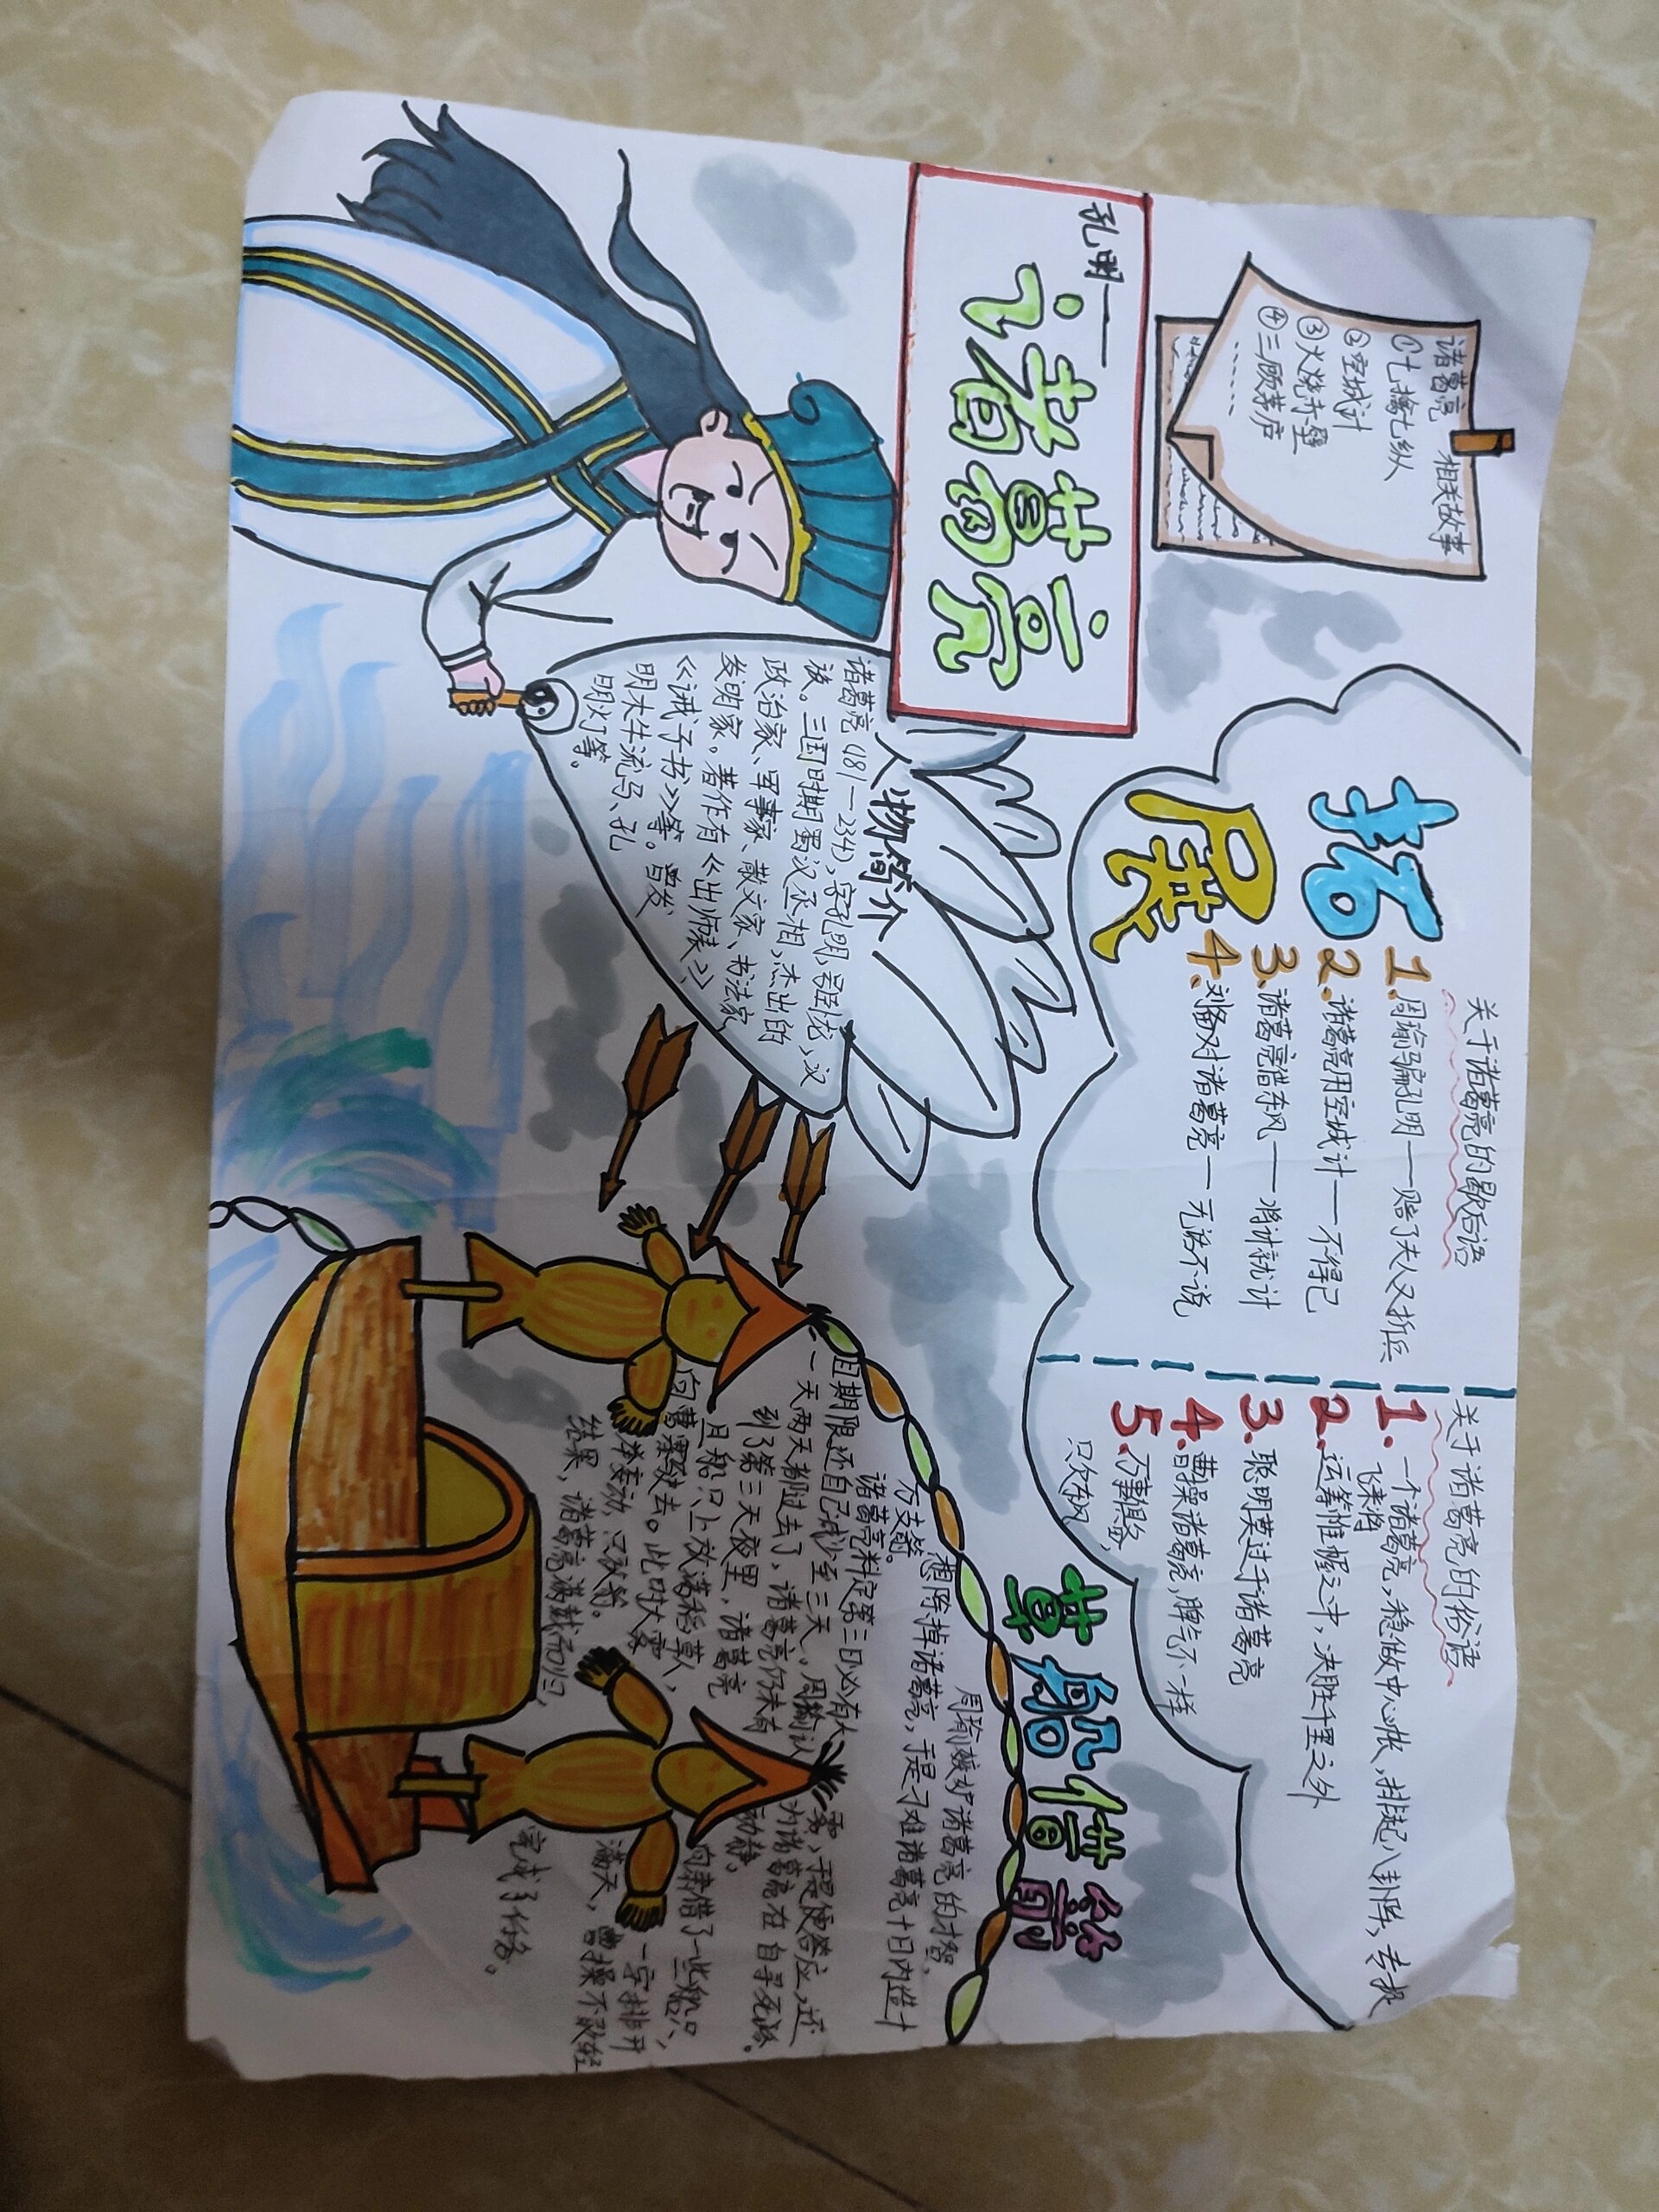 诸葛亮 相关故事
①七擒七纵
②空城计
③火烧赤壁
④三顾茅庐
孔明——
诸葛亮
人物简介
诸葛亮（181—234），字孔明，号卧龙，汉
族。三国时期蜀汉丞相，杰出的
政治家、军事家、散文家、书法家
发明家。著作有《出师表》、
《诫子书》等。曾发
明木牛流马、孔
明灯等。
拓展
关于诸葛亮的歇后语
1.周瑜骗孔明——赔了夫人又折兵
2.诸葛亮用空城计——不得已
3.诸葛亮借东风——将计就计
4.刘备对诸葛亮—无话不说
关于诸葛亮的俗语
1.一个诸葛亮，稳做中心帐，排起八卦阵，专捉
飞来将
2.运筹帷幄之中，决胜千里之外
3.聪明莫过于诸葛亮
4.曹操诸葛亮，脾气不一样
5.万事俱备，
只欠东风
草船借箭
周瑜嫉妒诸葛亮的才智，
想除掉诸葛亮，于是刁难诸葛亮十日内造十
万支箭。
诸葛亮料定第三日必有大雾，于是便答应，还
且期限还自己减少至三天。周瑜认为诸葛亮在自寻死路。
一天两天都过去了，诸葛亮仍未有动静。
到了第三天夜里，诸葛亮向肃借了一些船只，
且船只上放满稻草人，一字排开
向曹寨驶去。此时大雾满天，曹操不敢轻
举妄动，只放箭。
结果，诸葛亮满载而归，
完成了任务。